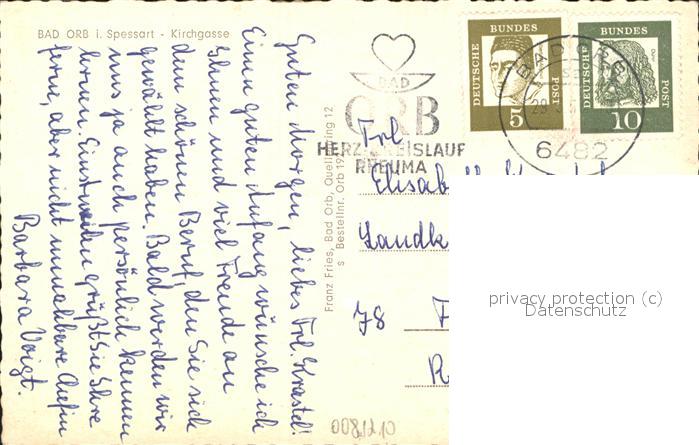 BAD ORB i. Spessart - Kirchgasse
Guten Morgen, liebes Frl. Krastel!
Einen guten Anfang wünsche ich
Ihnen und viel Freude an
dem schönen Beruf, den Sie sich
gewählt haben. Bald werden wir
uns ja auch persönlich kennen
lernen. Einstweilen grüßt Sie Ihre
ferne, aber nicht unnahbare Chefin
Barbara Voigt.
Franz Fries, Bad Orb, Quellenring 12
s Bestellnr. Orb 19
BAD
ORB
HERZ-KREISLAUF
RHEUMA
DEUTSCHE
BUNDES
POST
5
DEUTSCHE
BUNDES
POST
Dürer
10
BAD ORB
6482
Frl.
Elisab
Landk
78 F
R
privacy protection (c)
Datenschutz